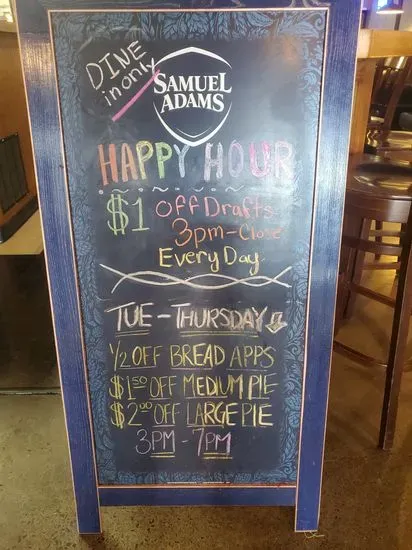 DINE
in only
SAMUEL
ADAMS
HAPPY HOUR
$1 OFF Drafts
3pm-Close
Every Day
TUE-THURSDAY
1/2 OFF BREAD APPS
$1.50 OFF MEDIUM PIE
$2.00 OFF LARGE PIE
3PM - 7PM